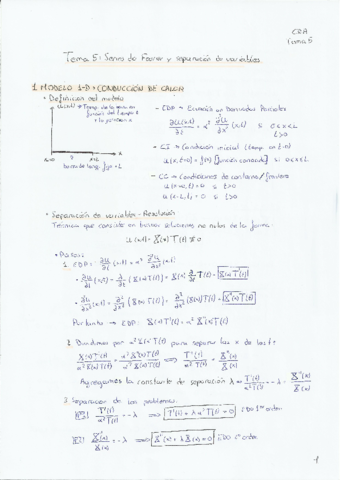 EDA
Tema 5
Tema 5: Series de Fourier y separación de variables.
1. MODELO 1-D → CONDUCCIÓN DE CALOR
• Definición del modelo
- EDP → Ecuación en Derivadas Parciales
∂u/∂t (x,t) = α² ∂²u/∂x² (x,t) si 0<x<L t>0
- CI → Condición inicial (temp. en t=0)
u(x,t=0) = f(x) [función conocida] si 0≤x≤L
- CC → Condiciones de contorno/frontera
u(x=0,t) = 0 si t>0
u(x=L,t) = 0 si t>0
• Separación de variables - Resolución
Técnica que consiste en buscar soluciones no nulas de la forma:
u(x,t) = X(x) T(t) ≠ 0
• Pasos:
1. EDP: ∂u/∂t (x,t) = α² ∂²u/∂x² (x,t)
• ∂u/∂t (x,t) = ∂/∂t (X(x)T(t)) = X(x) ∂/∂t T(t) = X(x)T'(t)
• ∂²u/∂x² (x,t) = ∂²/∂x² (X(x)T(t)) = ∂²/∂x² (X(x)) T(t) = X''(x)T(t)
Por tanto → EDP: X(x)T'(t) = α² X''(x)T(t)
2. Dividimos por α² X(x)T(t) para separar las x de las t:
X(x)T'(t) / α² X(x)T(t) = α² X''(x)T(t) / α² X(x)T(t) ⟹ T'(t) / α² T(t) = X''(x) / X(x)
Agregamos la constante de separación λ ⟹ T'(t) / α² T(t) = -λ = X''(x) / X(x)
3. Separación de los problemas.
T'(t) / α² T(t) = -λ ⟹ T'(t) + λ α² T(t) = 0
X''(x) / X(x) = -λ ⟹ X''(x) + λ X(x) = 0
1